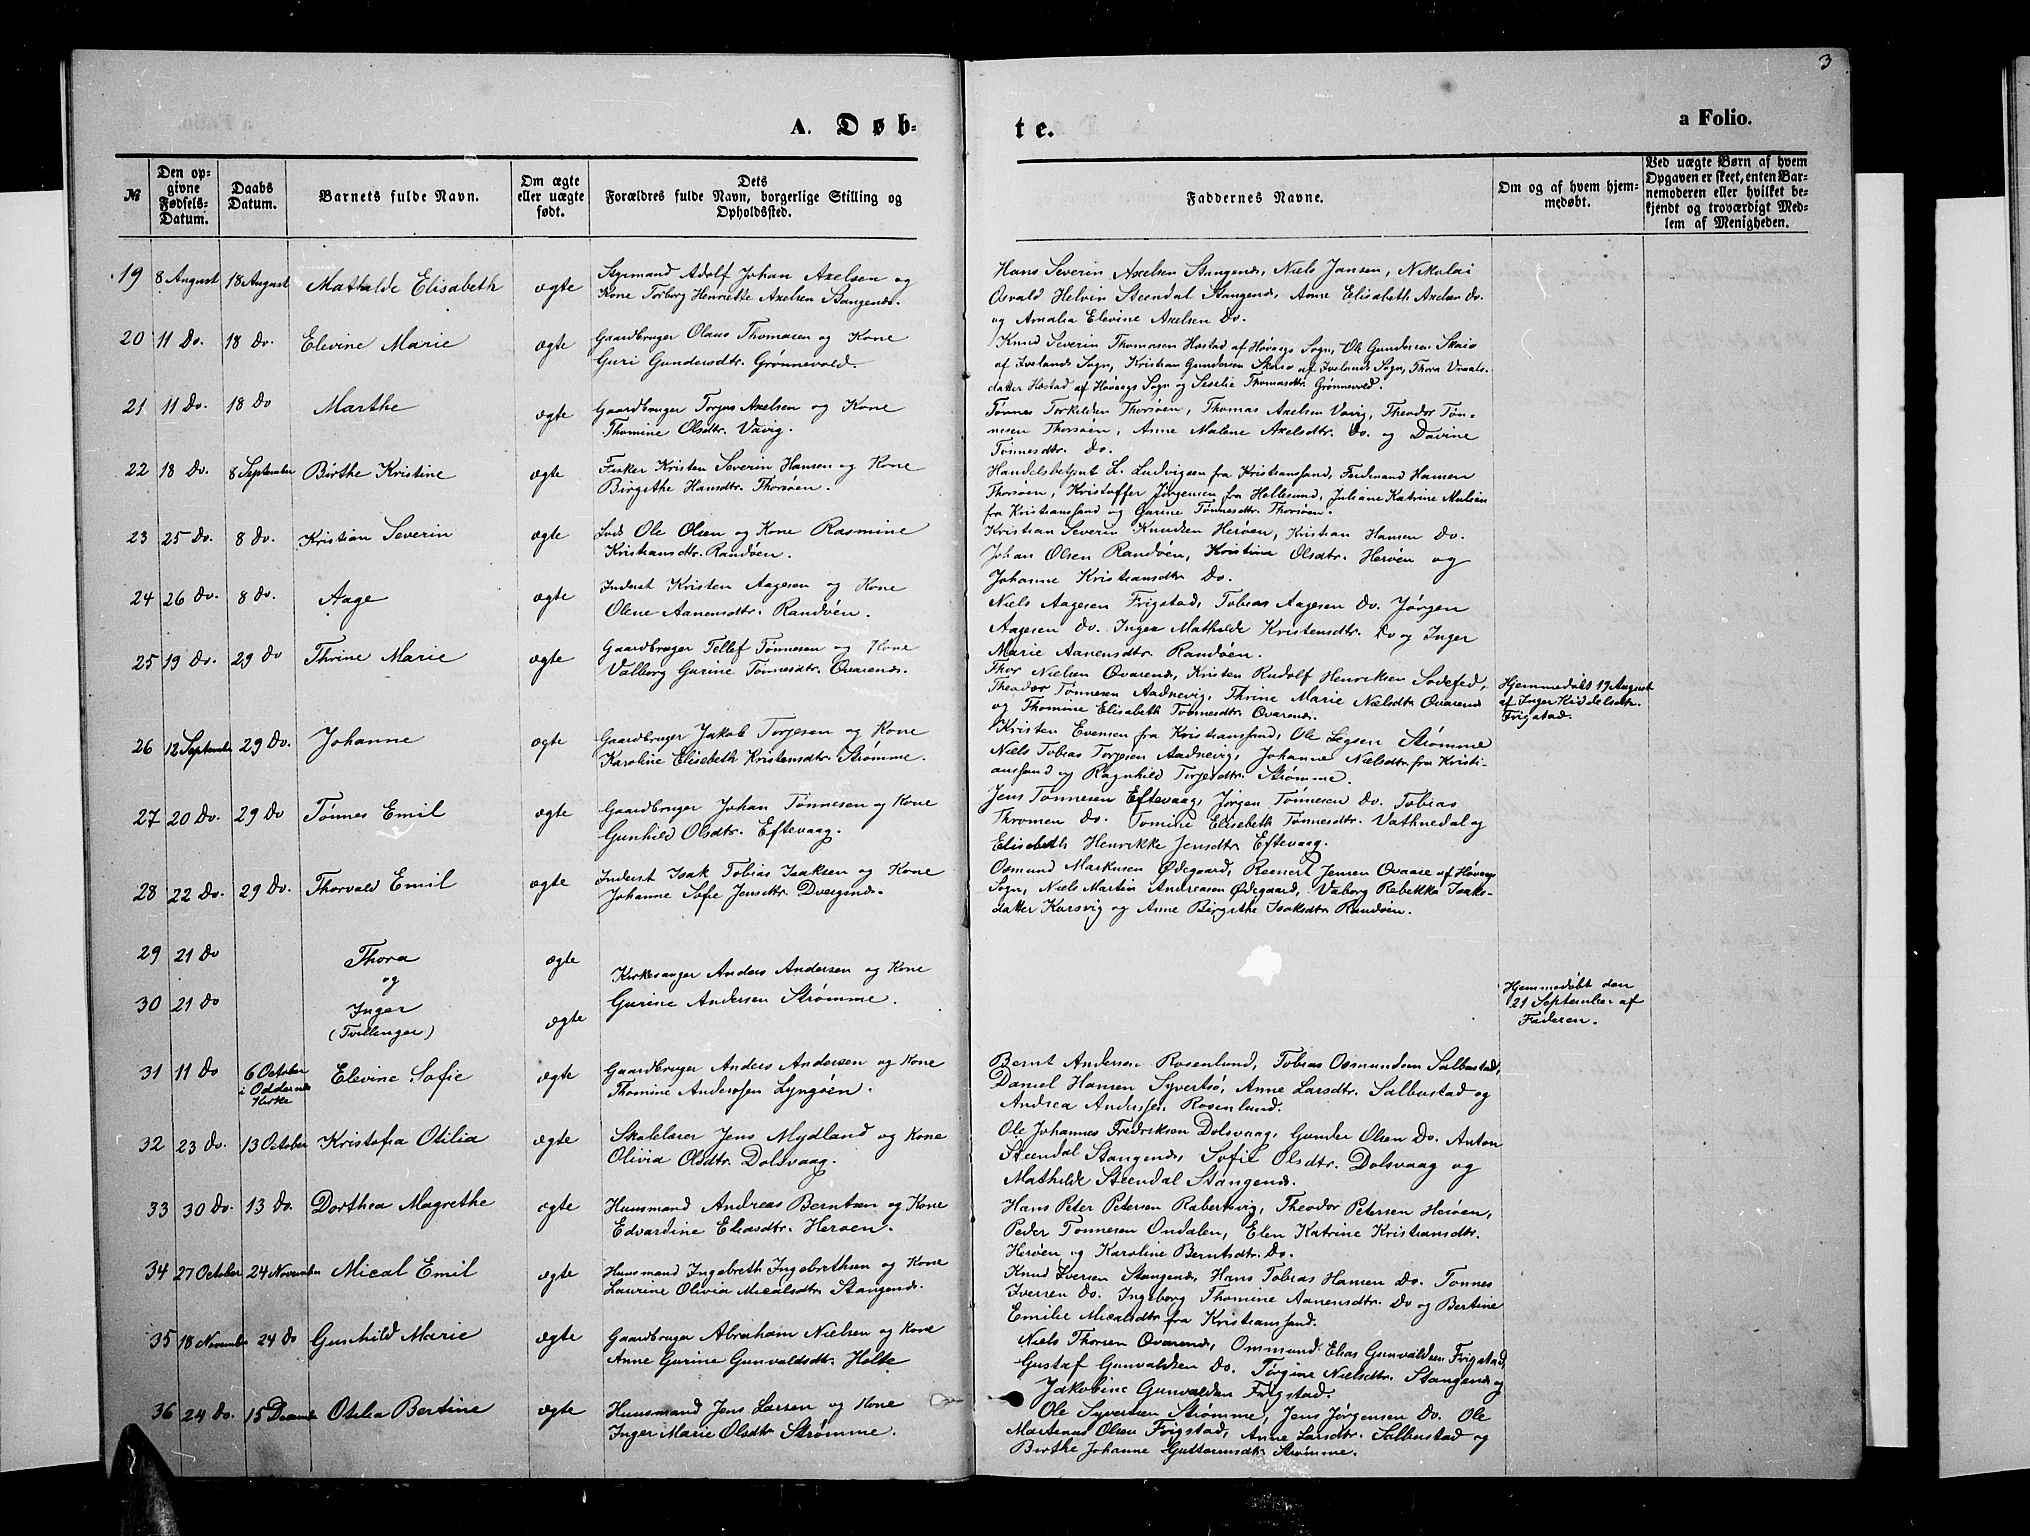 3
A. Døb-
te.
a Folio.
№
Den op-
givne
Fødsels-
Datum.
Daabs
Datum.
Barnets fulde Navn.
Om ægte
eller uægte
født.
Dets
Forældres fulde Navn, borgerlige Stilling og
Opholdssted.
Faddernes Navne.
Om og af hvem hjem-
medøbt.
Ved uægte Børn af hvem
Opgaven er skeet, enten Bar-
nemoderen eller hvilket be-
kjendt og troværdigt Med-
lem af Menigheden.
19 8 August 18 August Mathilde Elisabeth ægte
Styrmand Adolf Johan Axelsen og
Kone Torborg Henriette Axelsen Stangenes.
Hans Severin Axelsen Stangenes, Niels Jansen, Nikolai
Osvald Helvin Steendal Stangenes, Anne Elisabeth Axelsen Do.
og Amalia Elevine Axelsen Do.
20 11 Do. 18 Do. Elevine Marie ægte
Gaardbruger Olaus Thomasen og Kone
Guri Gundersdtr. Grønnevold.
Knud Severin Thomasen Hostad af Høvaags Sogn, Ole Gundersen Skaio
af Ivelands Sogn, Kristian Gundersen Skaio af Ivelands Sogn, Thora Vraals-
datter Hostad af Høvaags Sogn og Seselie Thomasdtr. Grønnevold.
21 11 Do. 18 Do Marthe ægte
Gaardbruger Torjus Axelsen og Kone
Thomine Olsdtr. Vavig.
Tønnes Torkeldsen Thorsøen, Thomas Axelsen Vavig, Theodor Tøn-
nesen Thorsøen, Anne Malene Axelsdtr. Do. og Davine
Tønnesdtr. Do.
22 18 Do. 8 September Birthe Kristine ægte
Fisker Kristen Severin Hansen og Kone
Birgithe Hansdtr. Thorsøen.
Handelsbetjent L. Ludvigsen fra Kristiansand, Ferdinand Hansen
Thorsøen, Kristoffer Jørgensen fra Hellesund, Juliane Katrine Nielsen
fra Kristiansand og Gurine Tønnesdtr. Thorsøen.
23 25 Do. 8 Do. Kristian Severin ægte
Lods Ole Olsen og Kone Rasmine
Kristiansdtr. Randøen.
Kristian Severin Knudsen Herøen, Kristian Hansen Do.
Johan Olsen Randøen, Kristine Olsdtr. Herøen og
Johanne Kristiansdtr Do.
24 26 Do. 8 Do. Aage ægte
Inderst Kristen Aagesen og Kone
Olene Aanensdtr. Randøen.
Niels Aagesen Frigstad, Tobias Aagesen Do. Jørgen
Aagesen Do. Inger Mathilde Kristensdtr. Do og Inger
Marie Aanensdtr. Randøen.
25 19 Do. 29 Do Thrine Marie ægte
Gaardbruger Tellef Tønnesen og Kone
Valborg Gurine Tønnesdtr. Qvarenes.
Thor Nielsen Qvarenes, Kristen Rudolf Henriksen Sodefed,
Theodor Tønnesen Aadnevig, Thrine Marie Nielsdtr Qvarenes
og Thomine Elisabeth Tønnesdtr. Qvarenes.
Hjemmedøbt 19 August
af Inger Kiddelsdtr.
Frigstad.
26 12 September 29 Do. Johanne ægte
Gaardbruger Jakob Torjesen og Kone
Karoline Elisebeth Kristensdtr. Strømme.
Kristen Evensen fra Kristiansand, Ole Strømme
Niels Tobias Torjesen Aadnevig, Johanne Nielsdtr. fra Kristi-
ansand og Ragnhild Torjesdtr. Strømme.
27 20 Do. 29 Do Tønnes Emil ægte
Gaardbruger Johan Tønnesen og Kone
Gunhild Olsdtr. Eftevaag.
Jens Tønnesen Eftevaag, Jørgen Tønnesen Do. Tobias
Thromsen Do. Tomine Elisebeth Tønnesdtr. Vathnedal og
Elisebeth Henrikke Jensdtr. Eftevaag.
28 22 Do. 29 Do. Thorvald Emil ægte
Inderst Isak Tobias Isaksen og Kone
Johanne Sofie Jensdtr. Dvergsnes.
Osmund Markusen Ødegaard, Reenert Jensen Ovaare af Høvaags
Sogn, Niels Martin Andreasen Ødegaard, Vaborg Rebekka Isaks-
datter Korsvig og Anne Birgithe Isaksdtr. Randøen.
29 21 Do Thora ægte
og
30 21 Do Inger ægte
(Tvillinger)
Kirkesanger Anders Andersen og Kone
Gurine Andersen Strømme.
Hjemmedøbt den
21 September af
Faderen.
31 11 Do 6 October
i Oddernes
Kirke
Elevine Sofie ægte
Gaardbruger Anders Andersen og Kone
Thomine Andersen Lyngøen.
Bernt Andersen Rosenlund, Tobias Osmundsen Salbustad,
Daniel Hansen Syvertsø, Anne Larsdtr. Salbustad og
Andrea Andersen Rosenlund.
32 23 Do. 13 October Kristofa Otilia ægte
Skolelærer Jens Mydland og Kone
Olivia Olsdtr. Dolsvaag.
Ole Johannes Fredriksen Dolsvaag, Gunder Olsen Do. Anton
Steendal Stangenes, Sofie Olsdtr. Dolsvaag og
Mathilde Steendal Stangenes.
33 30 Do. 13 Do. Dorthea Magrethe ægte
Huusmand Andreas Berntsen og Kone
Edvardine Eliasdtr. Herøen.
Hans Peter Petersen Rabersvig, Theodor Petersen Herøen,
Peder Tønnesen Ondalen, Elen Katrine Kristiansdtr.
Herøen og Karoline Berntsdtr. Do.
34 27 October 24 November Mical Emil ægte
Huusmand Ingebreth Ingebrethsen og Kone
Laurine Olivia Micalsdtr. Stangenes.
Knud Iversen Stangenes, Hans Tobias Hansen Do. Tønnes
Iversen Do. Ingeborg Thomine Aanensdtr. Do og Bertine
Emilie Micalsdtr fra Kristiansand.
35 18 November 24 Do Gunhild Marie ægte
Gaardbruger Abraham Nielsen og Kone
Anne Gurine Gunvaldsdtr. Holte
Niels Thorsen Qvarenes, Ommund Elias Gunvaldsen Frigstad,
Gustaf Gunvaldsen Do. Tørgine Nielsdtr. Stangenes og
Jakobine Gunvaldsen Frigstad.
36 24 Do. 15 December Otilia Bertine ægte
Huusmand Jens Larsen og Kone
Inger Marie Olsdtr Strømme.
Ole Syvertsen Strømme, Jens Jørgensen Do. Ole
Martinus Olsen Frigstad, Anne Larsdtr. Salbustad og
Birthe Johanne Guttormsdtr. Strømme.